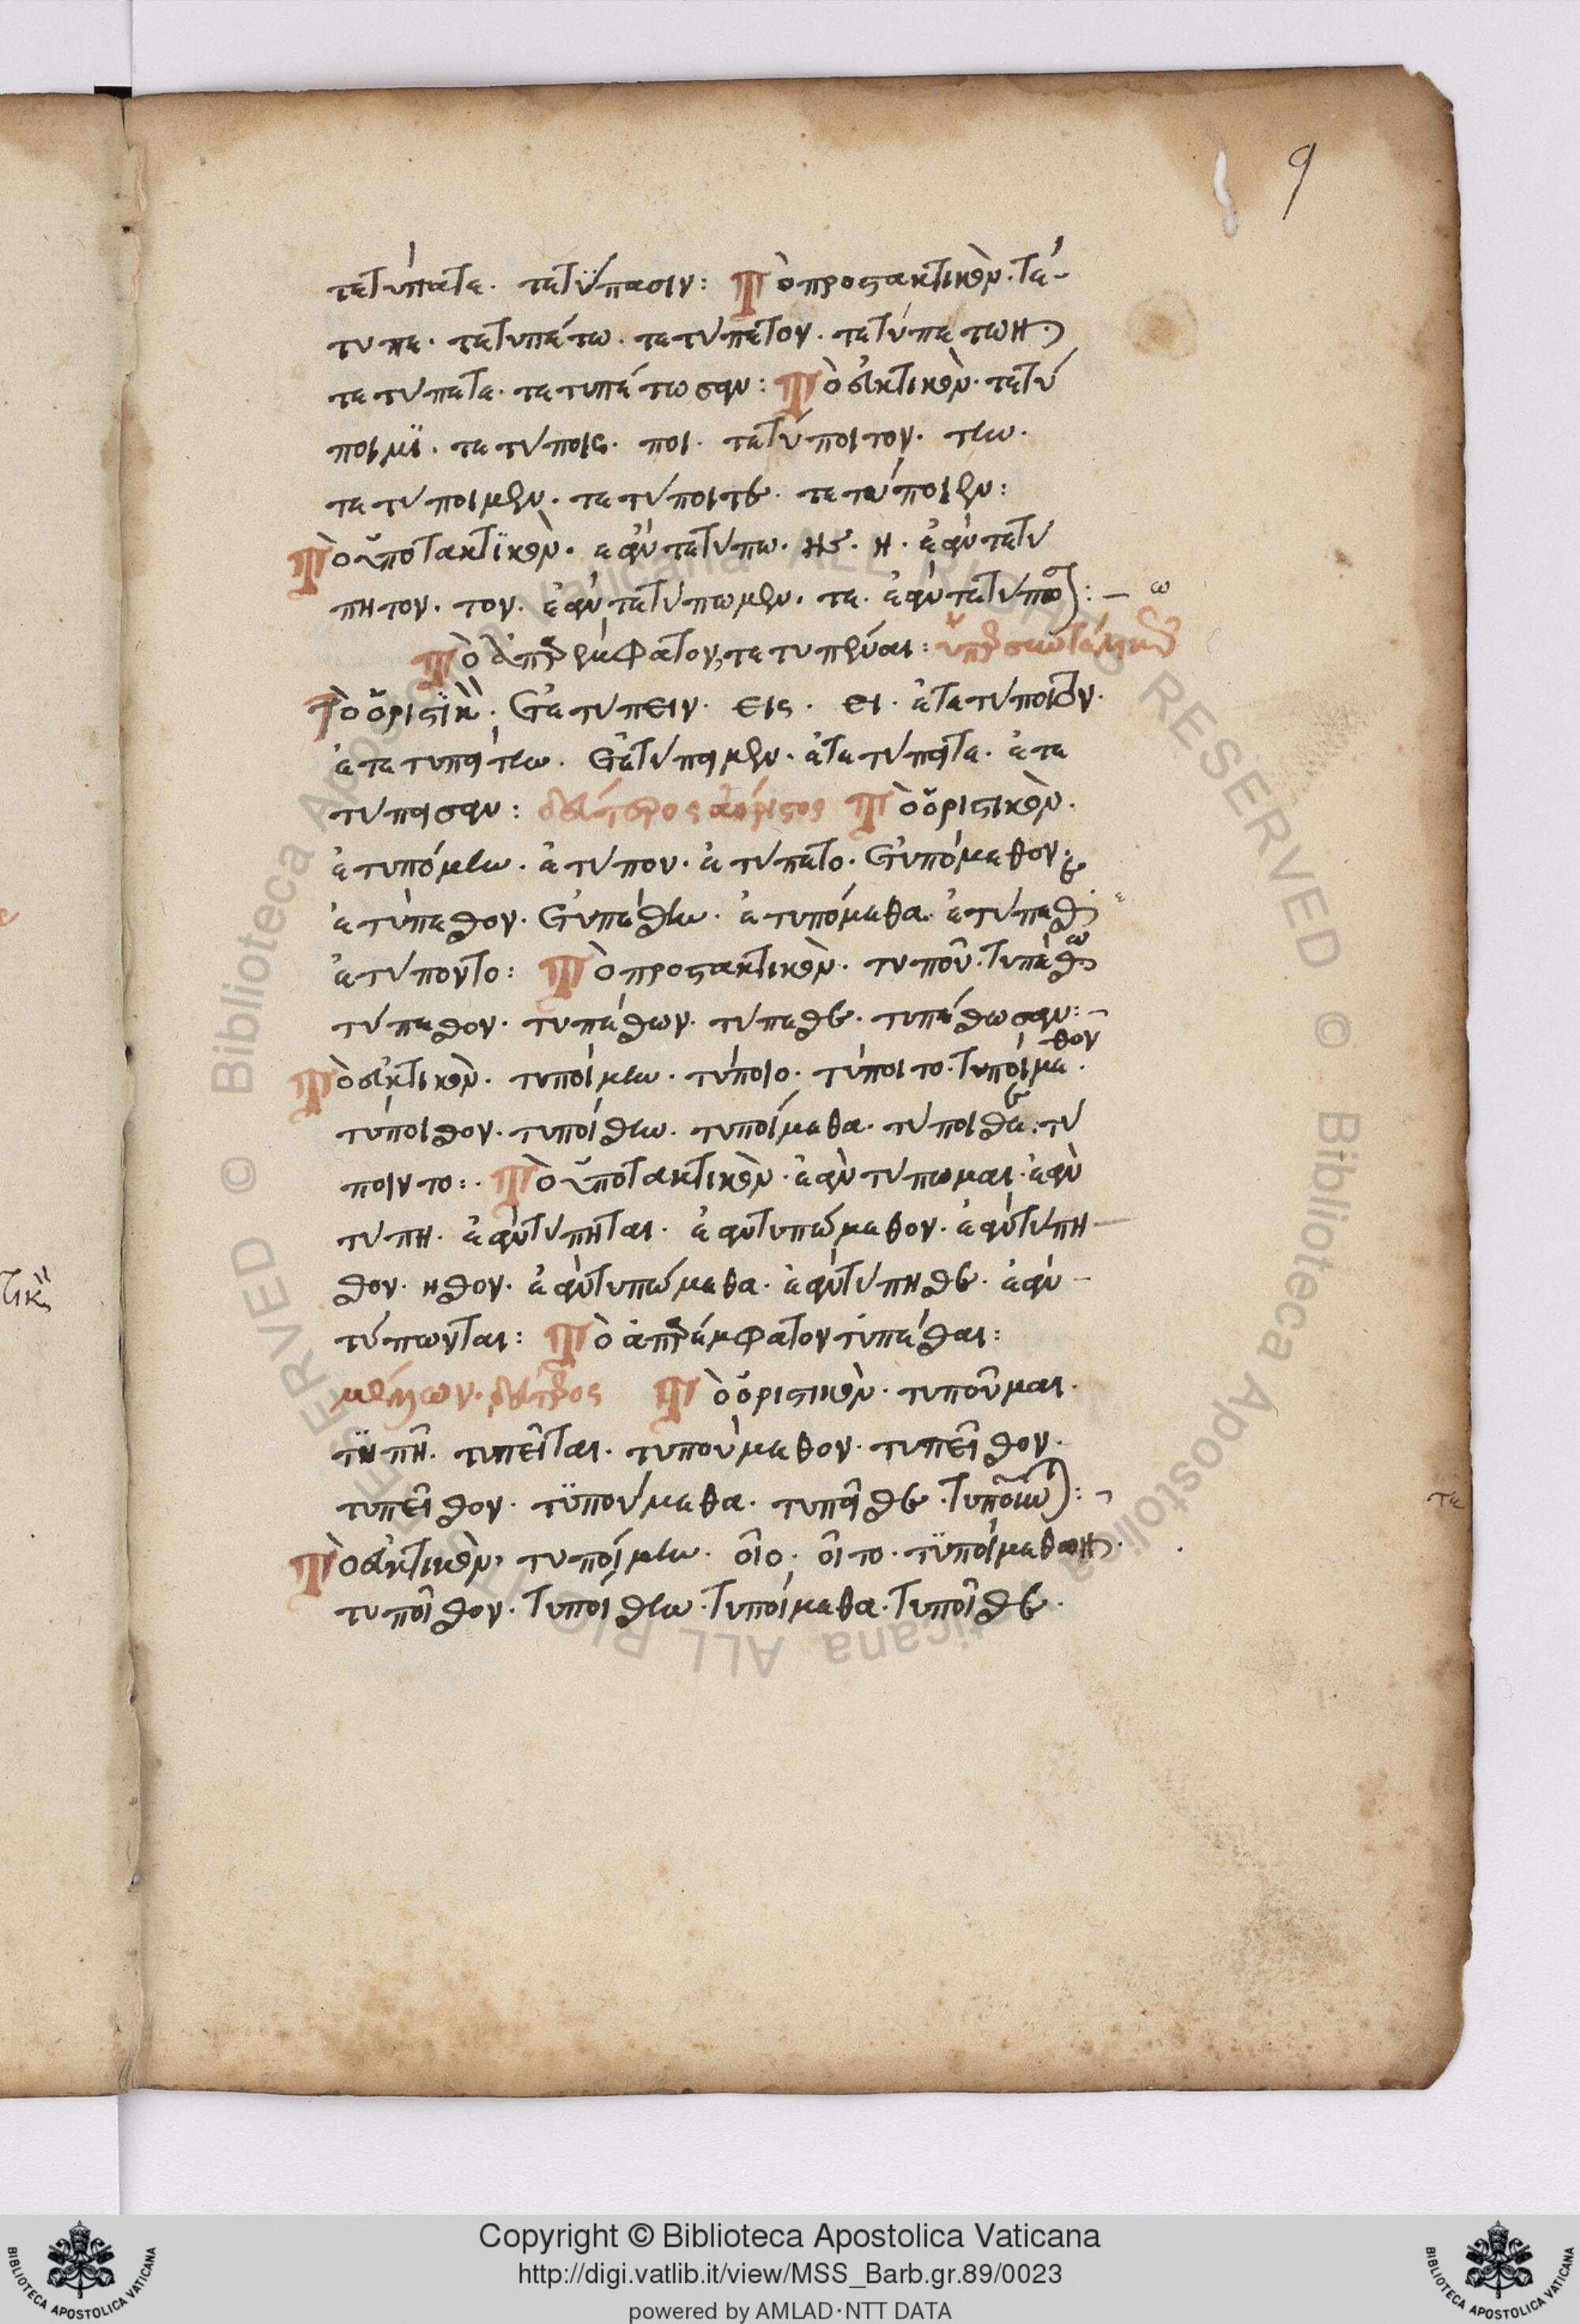 9
τετύπατε. τετΰπασιν: Τὸ προστακτικὸν. τέ-
τυπε. τετυπέτω. τετύπετον. τετυπέτων.
τετύπετε. τετυπέτωσαν: Τὸ εὐκτικὸν. τετύ
ποιμϊ. τετύποις. ποι. τετύποιτον. την.
τετύποιμεν. τετύποιτε. τετύποιεν:
Τὸ ὑποτακτϊκὸν. ἐὰν τετύπω. ης. η. ἐὰν τετύ
πητον. τον. ἐὰν τετύπωμεν. τε. ἐὰν τετύπωσι: — ω
Τὸ ἀπαρέμφατον, τετυπέναι: ὑπερσυντέλικος
Τὸ ὁριστϊκὸν. ἐτετύπειν. εις. ει. ἐτετύποιτον.
ἐτετυπείτην. ἐτετύπειμεν. ἐτετύπειτε. ἐτε
τύπεισαν: δεύτερος ἀόριστος Τὸ ὁριστικὸν.
ἐτυπόμην. ἐτύπου. ἐτύπετο. ἐτυπόμεθον.
ἐτύπεσθον. ἐτυπέσθην. ἐτυπόμεθα. ἐτύπεσθε
ἐτύποντο: Τὸ προστακτικὸν. τυποῦ. τυπέσθω
τύπεσθον. τυπέσθων. τύπεσθε. τυπέσθωσαν:
Τὸ εὐκτικὸν. τυποίμην. τύποιο. τύποιτο. τυποίμεθον.
τύποισθον. τυποίσθην. τυποίμεθα. τύποισθε. τύ
ποιντο: Τὸ ὑποτακτικὸν. ἐὰν τύπωμαι. ἐὰν
τύπη. ἐὰν τύπηται. ἐὰν τυπώμεθον. ἐὰν τύπη
σθον. ησθον. ἐὰν τυπώμεθα. ἐὰν τύπησθε. ἐὰν
τύπωνται: Τὸ ἀπαρέμφατον τυπέσθαι:
μέλλων. δεύτερος Τὸ ὁριστικὸν. τυποῦμαι.
τϋπῆ. τυπεῖται. τυπούμεθον. τυπεῖσθον.
τυπεῖσθον. τϋπούμεθα. τυπεῖσθε. τυποῦνται:
Τὸ εὐκτικὸν, τυποίμην. οῖο. οῖτο. τϋποίμεθον.
τυποῖσθον. τυποίσθην. τυποίμεθα. τυποῖσθε.
Copyright © Biblioteca Apostolica Vaticana
http://digi.vatlib.it/view/MSS_Barb.gr.89/0023
powered by AMLAD·NTT DATA